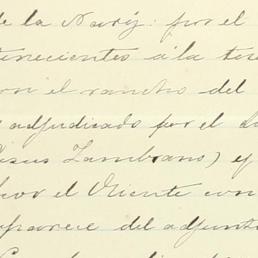 de la Nariz: por el
tenecientes á la tes
con el rancho del
adjudicado por el
Jesus Zambrano) y
por el Oriente con
aparece del adjunt